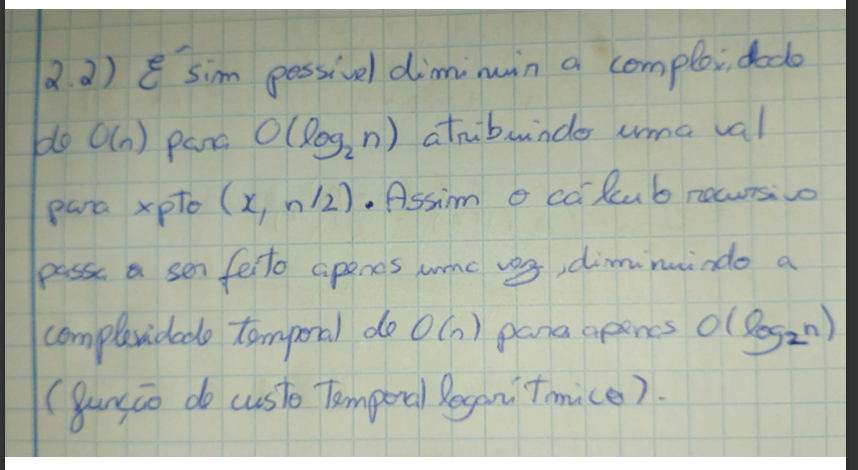 2.2) É sim possível diminuir a complexidade
de O(n) para O(log₂ n) atribuindo uma val
para xpto (x, n/2). Assim o cálculo recursivo
passa a ser feito apenas uma vez, diminuindo a
complexidade temporal de O(n) para apenas O(log₂n)
(função de custo temporal logarítmica).